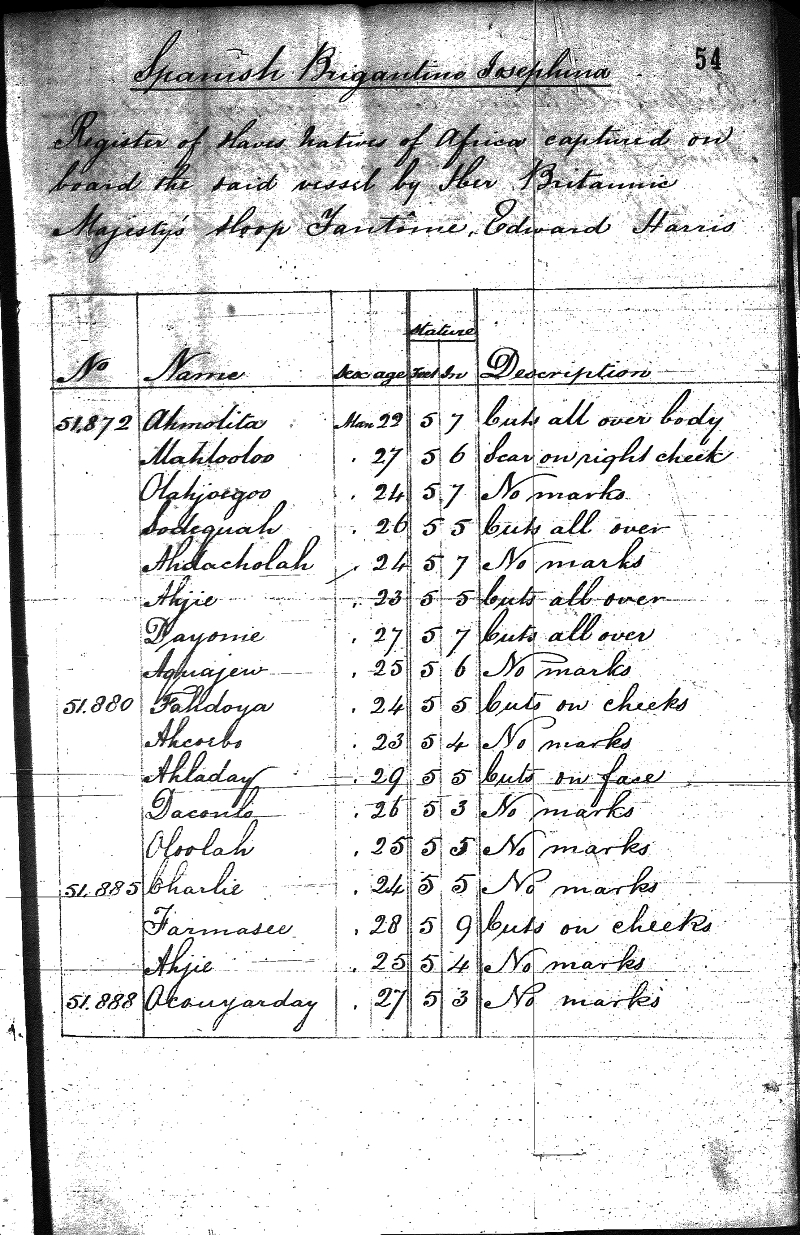 54
Spanish Brigantine Josephina
Register of Slaves Natives of Africa captured on
board the said vessel by Her Britannic
Majesty's Sloop Fantôme, Edward Harris
Stature
No Name Sex age Feet In Description
51,872 Ahmolita Man 22 5 7 Cuts all over body
Mahlooloo . 27 5 6 Scar on right cheek
Olahjoegoo . 24 5 7 No marks
Sodequah . 26 5 5 Cuts all over
Ahdacholah . 24 5 7 No marks
Ahjie . 23 5 5 Cuts all over
Dayome . 27 5 7 Cuts all over
Aquajew . 25 5 6 No marks
51.880 Fahdoya . 24 5 5 Cuts on cheeks
Ahcoebo . 23 5 4 No marks
Ahladay . 29 5 5 Cuts on face
. 26 5 3 No marks
Oloolah . 25 5 5 No marks
51.885 Charlie . 24 5 5 No marks
Farmasee . 28 5 9 Cuts on cheeks
Ahjie . 25 5 4 No marks
51.888 Ocouyarday . 27 5 3 No marks